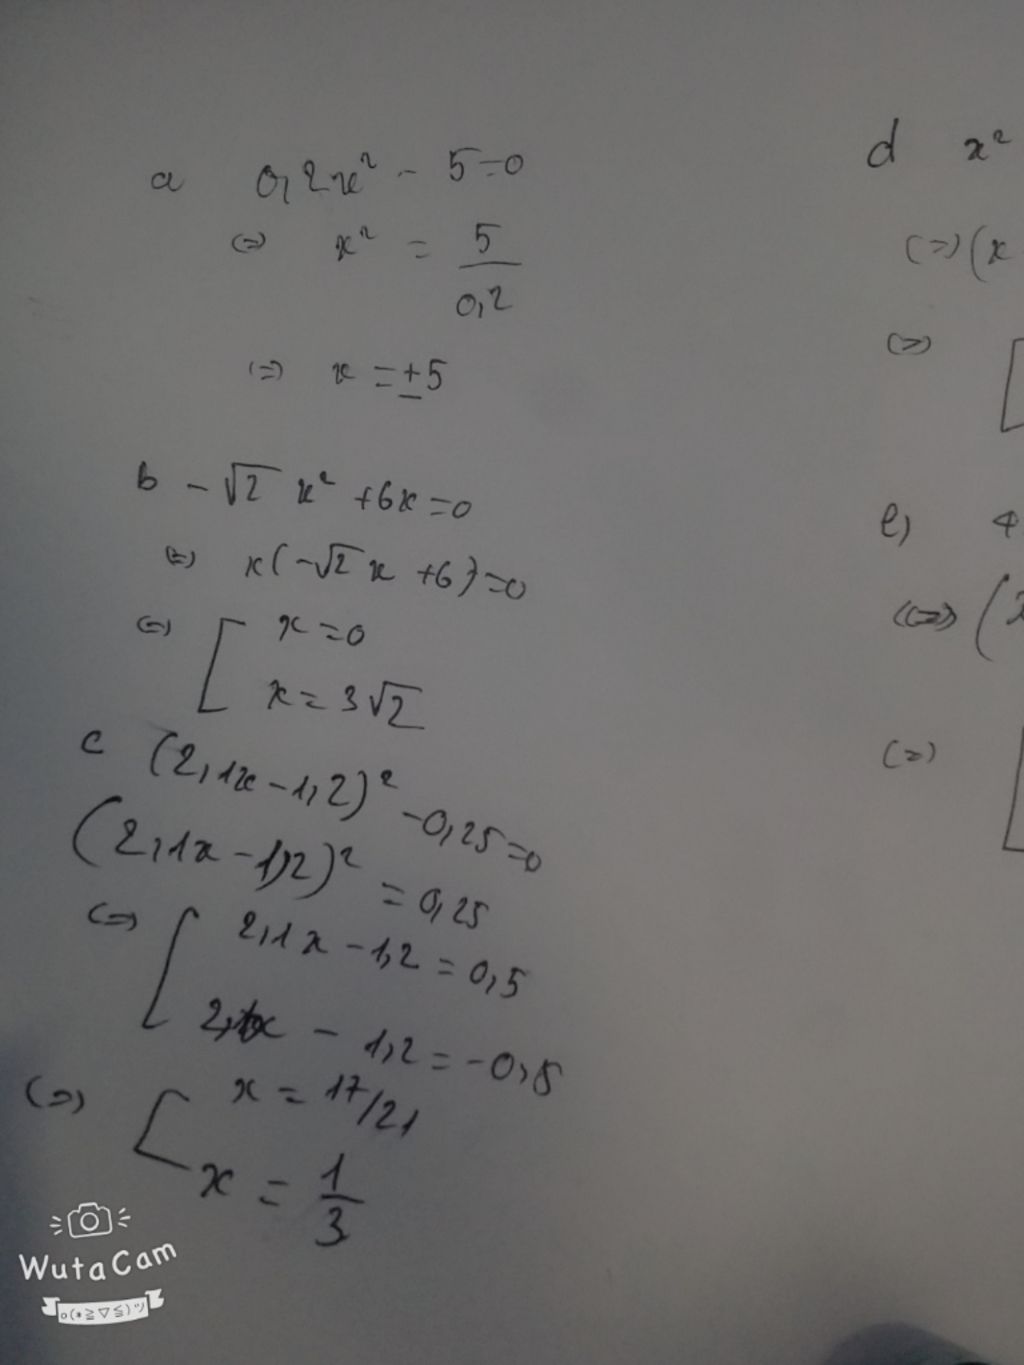 a 0,2x² - 5=0
(=) x² = 5/0,2
(=) x = ±5
b -√2 x² +6x=0
(=) x(-√2 x +6)=0
(=) [ x=0
x= 3√2
c (2,1x-1,2)² -0,25=0
(2,1x-1,2)² = 0,25
(=) [ 2,1x-1,2 = 0,5
2,1x - 1,2 = -0,5
(=) [ x = 17/21
x = 1/3
d x²
(=) (x
(=) [
e)
(=) (
(=) [
WutaCam
o(*≧▽≦)ツ